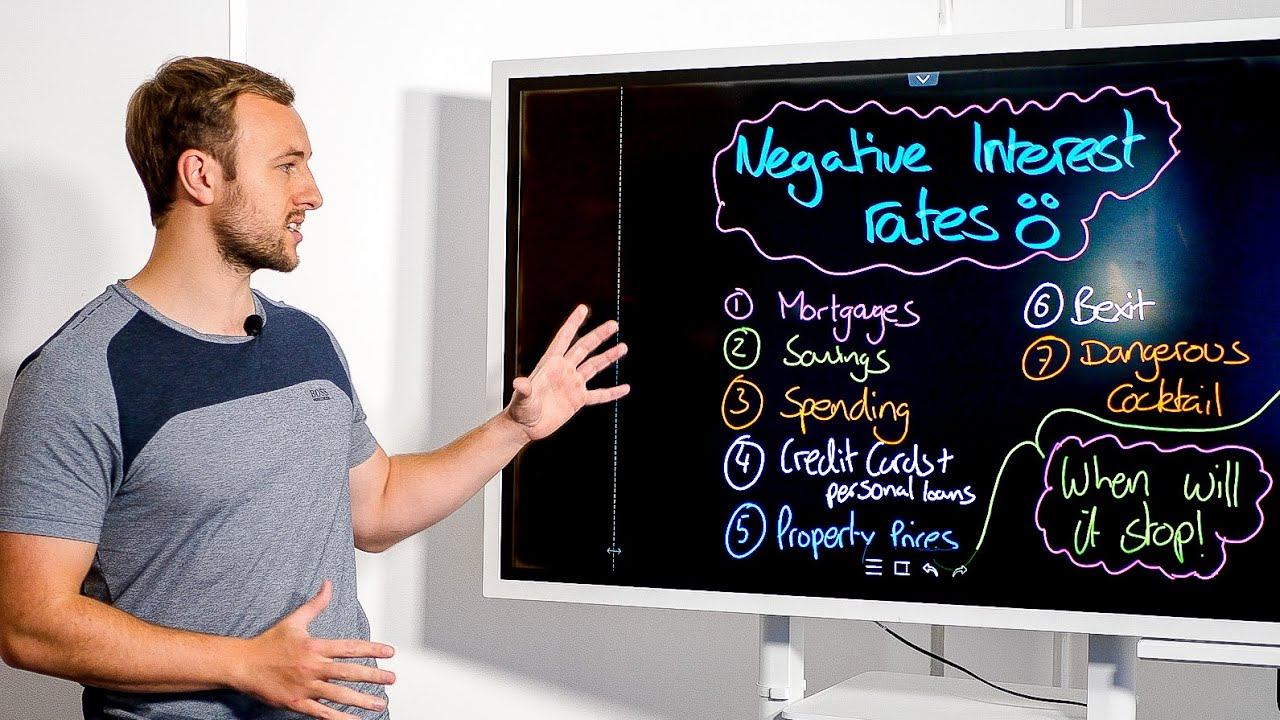 Negative Interest
rates
① Mortgages
② Savings
③ Spending
④ Credit Cards +
personal loans
⑤ Property Prices
⑥ Bexit
⑦ Dangerous
Cocktail
When will
it stop!
BOSS